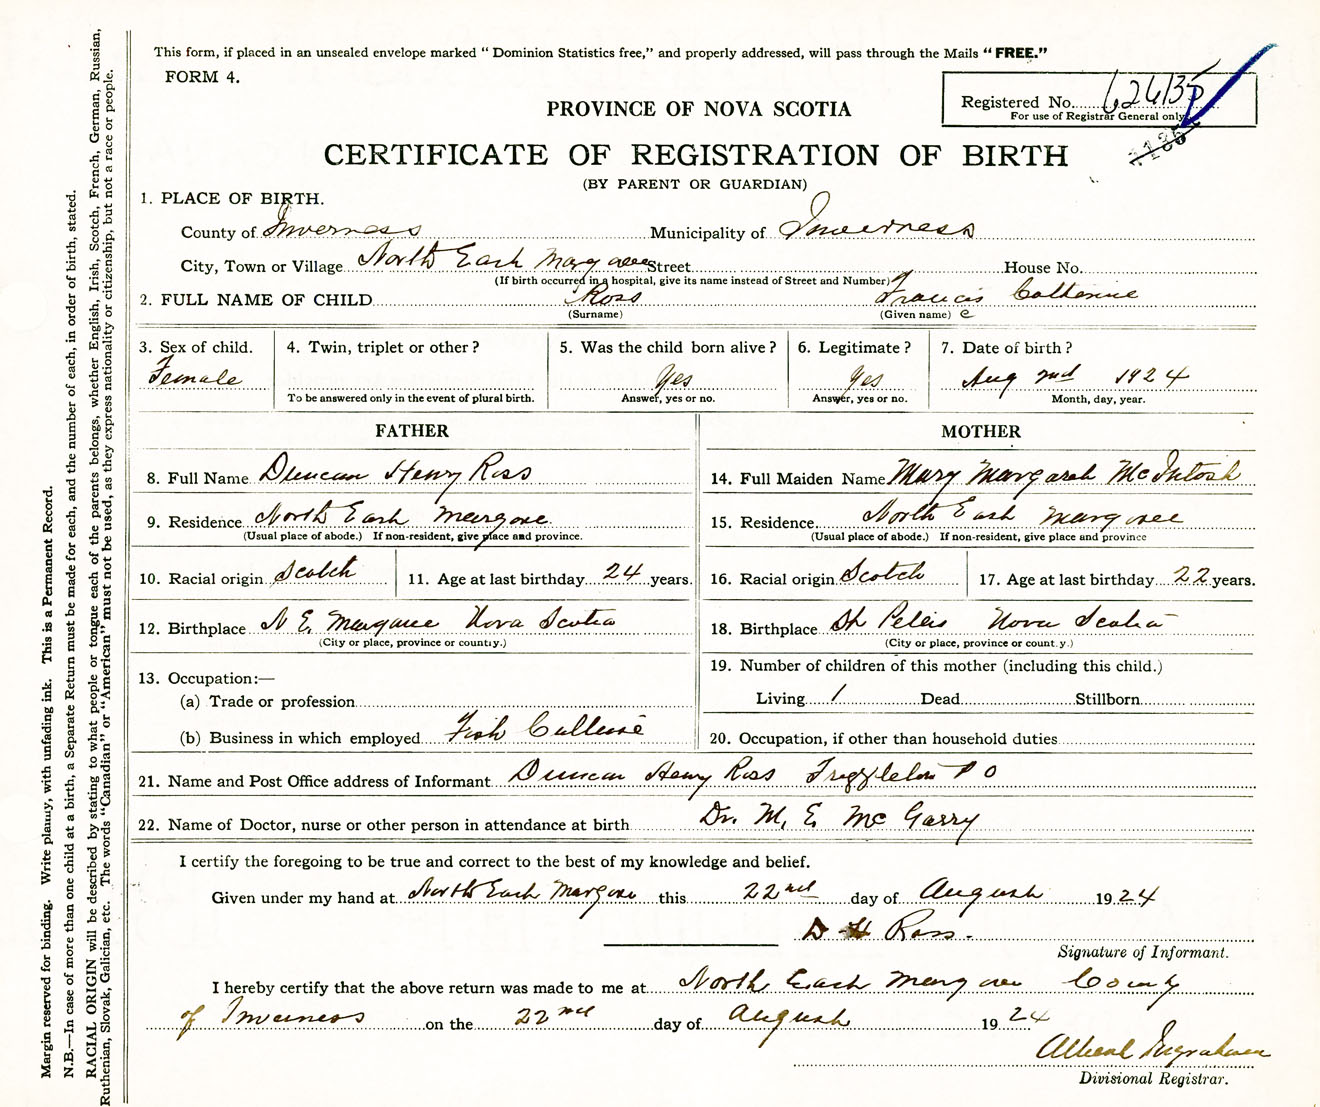 This form, if placed in an unsealed envelope marked “Dominion Statistics free,” and properly addressed, will pass through the Mails “FREE.”
FORM 4.
Registered No. 626135
For use of Registrar General only
PROVINCE OF NOVA SCOTIA
CERTIFICATE OF REGISTRATION OF BIRTH
(BY PARENT OR GUARDIAN)
1. PLACE OF BIRTH.
County of Inverness Municipality of Inverness
City, Town or Village North East Margaree Street House No.
(If birth occurred in a hospital, give its name instead of Street and Number)
2. FULL NAME OF CHILD Ross Francis Catherine
(Surname) (Given name) e
3. Sex of child. 4. Twin, triplet or other? 5. Was the child born alive? 6. Legitimate? 7. Date of birth?
Female Yes Yes Aug 2nd 1924
To be answered only in the event of plural birth. Answer, yes or no. Answer, yes or no. Month, day, year.
FATHER MOTHER
8. Full Name Duncan Henry Ross 14. Full Maiden Name Mary Margaret McIntosh
9. Residence North East Margaree 15. Residence North East Margaree
(Usual place of abode.) If non-resident, give place and province. (Usual place of abode.) If non-resident, give place and province
10. Racial origin Scotch 11. Age at last birthday 24 years. 16. Racial origin Scotch 17. Age at last birthday 22 years.
12. Birthplace N E, Margaree Nova Scotia 18. Birthplace St Peters Nova Scotia
(City or place, province or country.) (City or place, province or country.)
13. Occupation:— 19. Number of children of this mother (including this child.)
(a) Trade or profession Living 1 Dead Stillborn
(b) Business in which employed Fish Culture 20. Occupation, if other than household duties
21. Name and Post Office address of Informant Duncan Henry Ross Frizzleton P O
22. Name of Doctor, nurse or other person in attendance at birth Dr. M. E. McGarry
I certify the foregoing to be true and correct to the best of my knowledge and belief.
Given under my hand at North East Margaree this 22nd day of August 1924
D H Ross.
Signature of Informant.
I hereby certify that the above return was made to me at North East Margaree County
of Inverness on the 22nd day of August 1924
Albert Ingraham
Divisional Registrar.
Margin reserved for binding. Write plainly, with unfading ink. This is a Permanent Record.
N.B.—In case of more than one child at a birth, a Separate Return must be made for each, and the number of each, in order of birth, stated.
RACIAL ORIGIN will be described by stating to what people or tongue each of the parents belongs, whether English, Irish, Scotch, French, German, Russian,
Ruthenian, Slovak, Galician, etc. The words “Canadian” or “American” must not be used, as they express nationality or citizenship, but not a race or people.